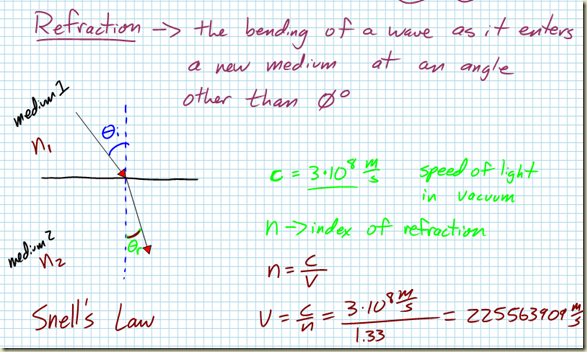 Refraction -> the bending of a wave as it enters
a new medium at an angle
other than ∅°
medium 1
n₁
θi
c = 3·10⁸ m/s speed of light
in vacuum
n -> index of refraction
medium 2
n₂
θr
n = c/v
Snell's Law
v = c/n = 3·10⁸ m/s / 1.33 = 225563909 m/s